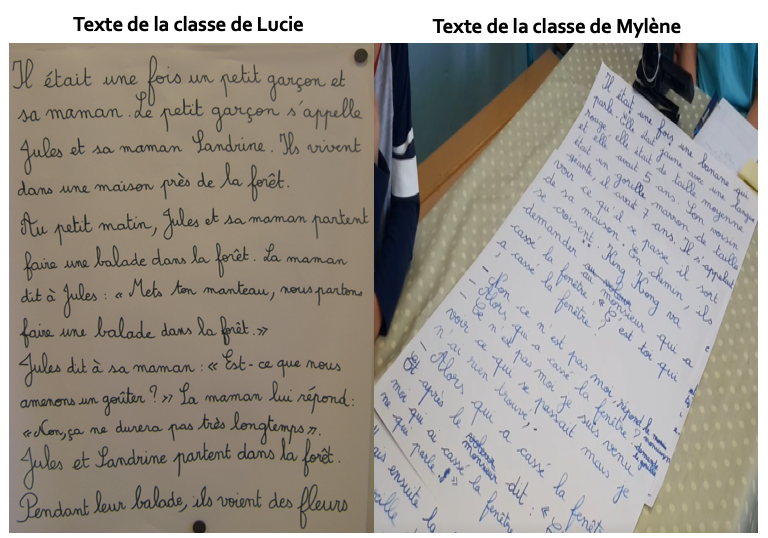 Texte de la classe de Lucie
Il était une fois un petit garçon et
sa maman. Le petit garçon s'appelle
Jules et sa maman Sandrine. Ils vivent
dans une maison près de la forêt.
Au petit matin, Jules et sa maman partent
faire une balade dans la forêt. La maman
dit à Jules : « Mets ton manteau, nous partons
faire une balade dans la forêt. »
Jules dit à sa maman : « Est-ce que nous
amenons un goûter ? » La maman lui répond :
« Non, ça ne durera pas très longtemps ».
Jules et Sandrine partent dans la forêt.
Pendant leur balade, ils voient des fleurs
Texte de la classe de Mylène
Il était une fois une banane qui
parle. Elle était jaune avec une langue
rouge elle était de taille moyenne
et elle avait 5 ans. Son voisin
était un gorille marron de taille
géante, il avait 7 ans. Il s'appelait
voir ce qu'il se passe il sort
de sa maison. En chemin, ils
se croisent. King Kong va
demander au monsieur qui a
cassé la fenêtre « C'est toi qui
a cassé la fenêtre ?
- Non ce n'est pas moi, répond le
- Alors qui a cassé la fenêtre ?
- Ce n'est pas moi je suis venu
voir ce qui se passait mais je
n'ai rien trouvé.
- Alors qui a cassé la fenêtre
Et après le monsieur dit : «
moi qui a cassé la fenêtre
ne qui parle ! »
ensuite la